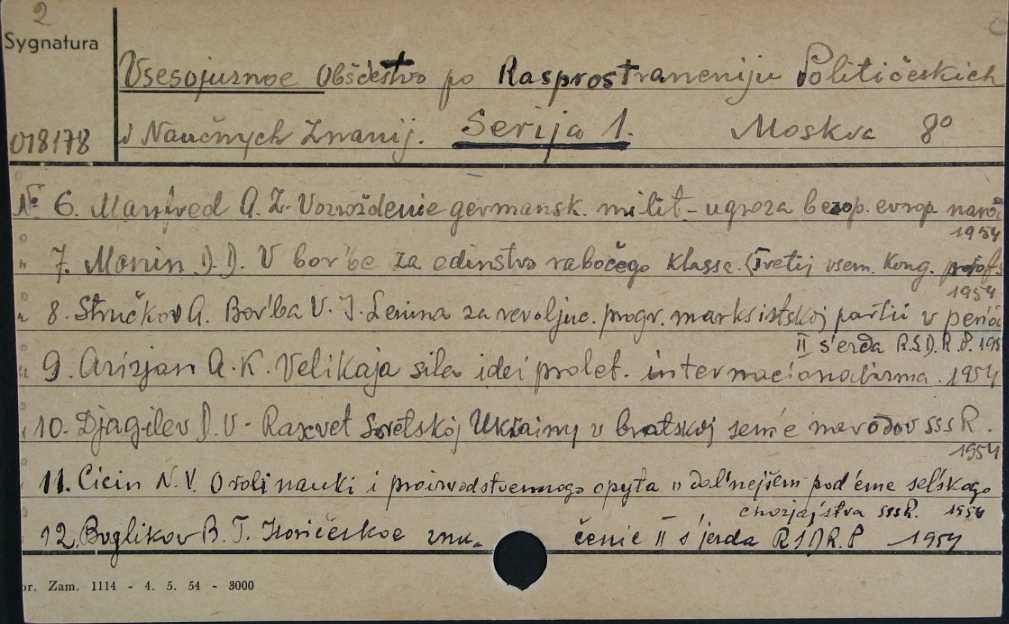 2
Sygnatura
Vsesojuznoe Obščestvo po Rasprostraneniju Političeskich
018178 i Naučnych Znanij. Serija 1. Moskva 8°
№ 6. Manfred A. Z. Vozroždenie germansk. milit. - ugroza bezop. evrop. narod
1954
" 7. Monin D. D. V bor'be za edinstvo rabočego klassa. (Tretij vsem. kong. profs
1954
" 8. Stručkov A. Bor'ba V. I. Lenina za revoljuc. progr. marksistskoj partii v period
II s'ezda R.S.D.R.P. 195
" 9. Arizjan A. K. Velikaja sila idei prolet. internacionalizma. 1954
" 10. Djagilev D. V - Raxvet Sovetskoj Ukrainy v bratskoj sem'e narodov SSSR.
1954
11. Cicin N. V. O roli nauki i proizvodstvennogo opyta v dal'nejšem pod'eme sel'skogo
chozjajstva SSSR. 1954
12. Boglikov B. T. Istoričeskoe zna- čenie II s'jezda RSDR.P 1954
or. Zam. 1114 - 4. 5. 54 - 3000